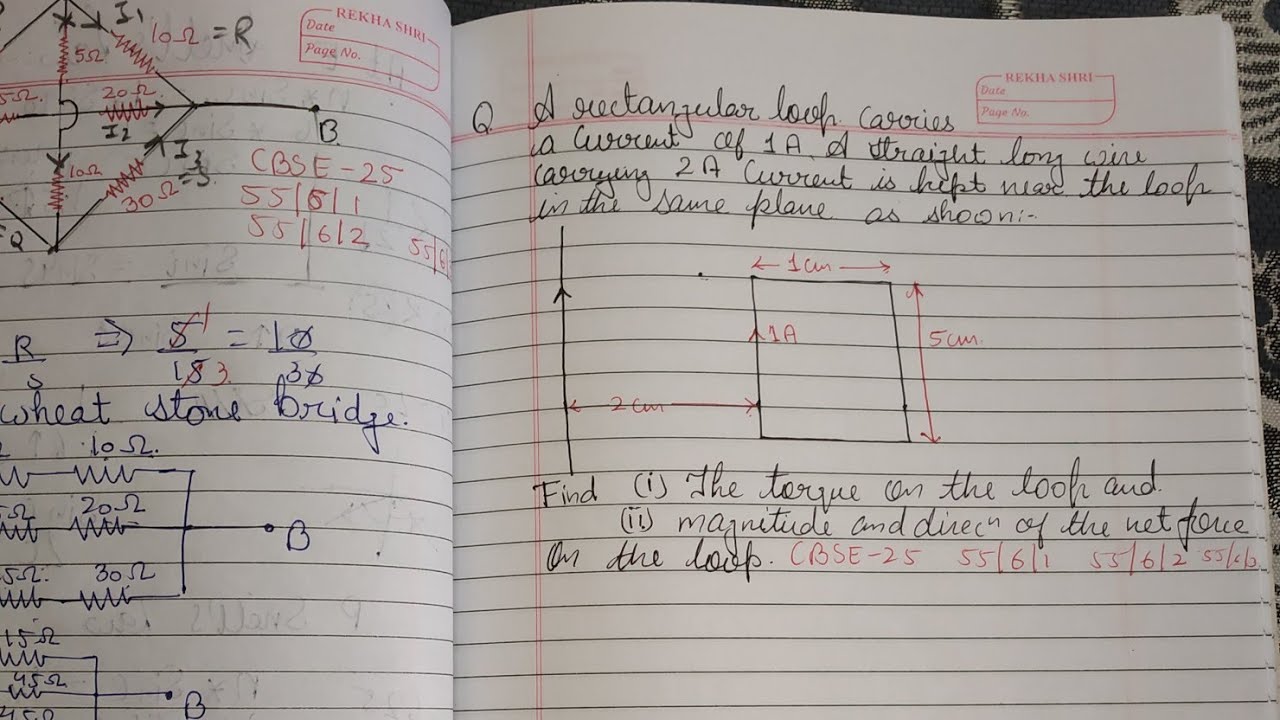 I1
10Ω = R
5Ω
20Ω
I2
B
I3
10Ω
30Ω = S
Q
CBSE-25
55/6/1
55/6/2
55/6
REKHA SHRI
Date
Page No.
R/S ⇒ 5/15 = 10/30
1
3
wheat stone bridge.
10Ω.
20Ω
B
5Ω.
30Ω
15Ω
45Ω
B
45Ω
REKHA SHRI
Date
Page No.
Q. A rectangular loop carries
a current of 1A. A straight long wire
carrying 2A Current is kept near the loop
in the same plane as shoon:-
1cm
1A
5cm.
2cm
Find (i) The torque on the loop and.
(ii) magnitude and direcn of the net force
on the loop. CBSE-25 55/6/1 55/6/2 55/6/3